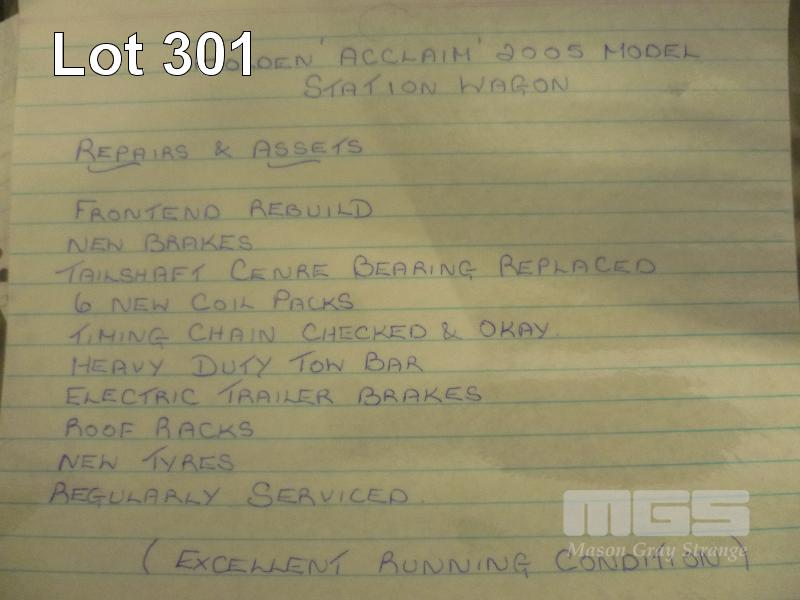 Lot 301
HOLDEN 'ACCLAIM' 2005 MODEL
STATION WAGON
REPAIRS & ASSETS
FRONTEND REBUILD
NEW BRAKES
TAILSHAFT CENRE BEARING REPLACED
6 NEW COIL PACKS
TIMING CHAIN CHECKED & OKAY.
HEAVY DUTY TOW BAR
ELECTRIC TRAILER BRAKES
ROOF RACKS
NEW TYRES
REGULARLY SERVICED.
MGS
Mason Gray Strange
(EXCELLENT RUNNING CONDITION)